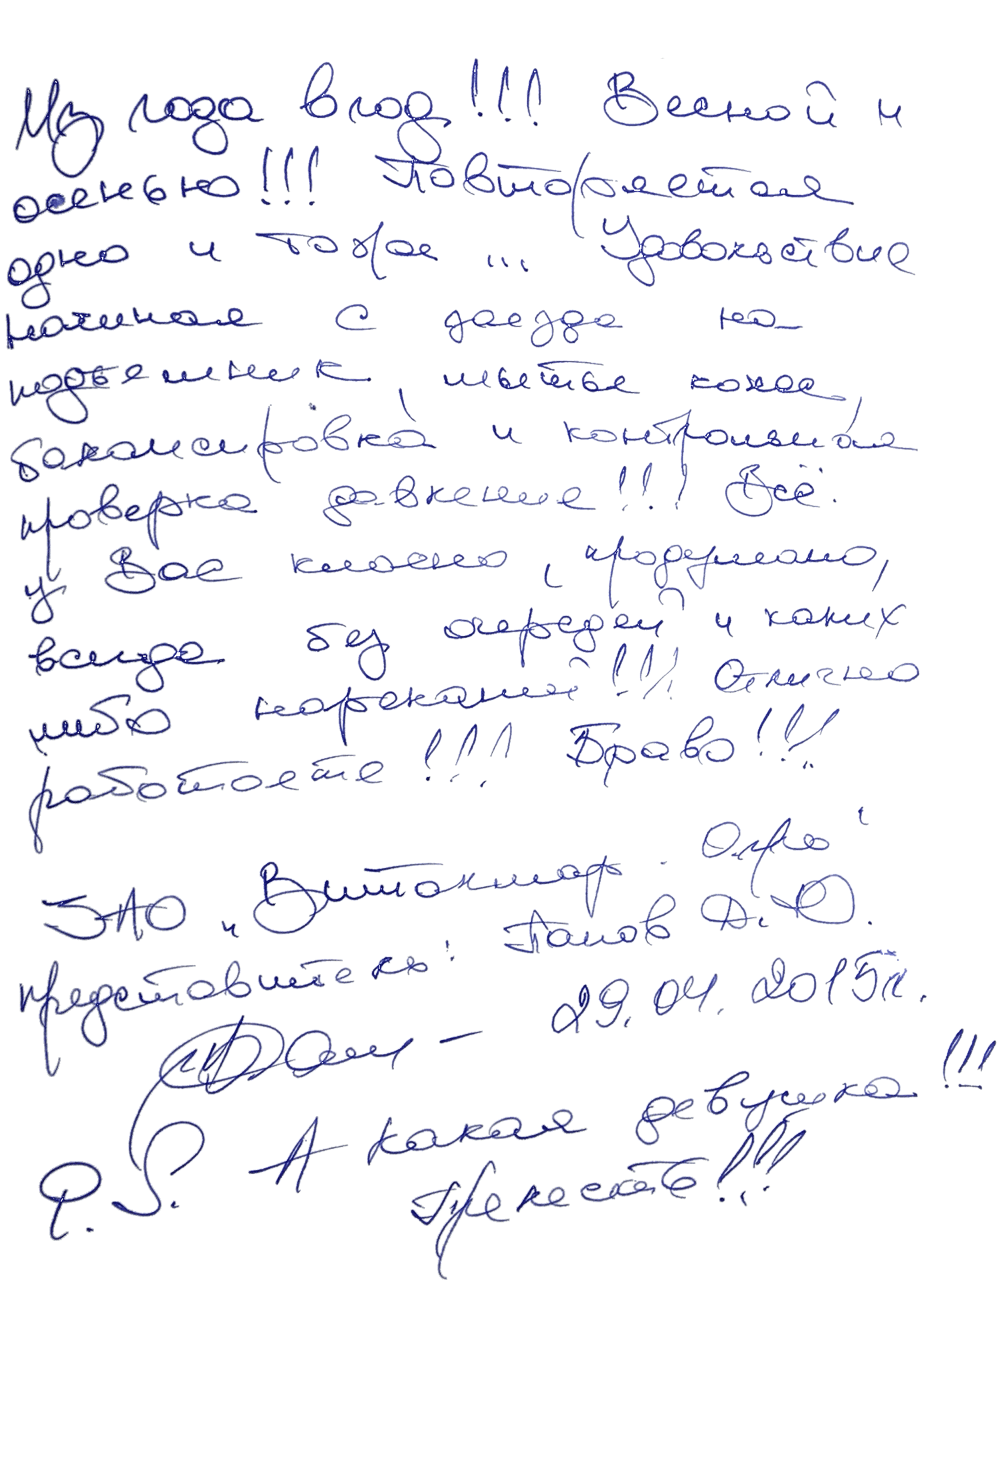 Из года в год!!! Весной и
осенью!!! Повторяется
одно и тоже... Удовольствие
начиная с заезда на
подъемник, мытье колес,
балансировка и контрольная
проверка давления!!! Всё
у Вас классно, продумано,
всегда без очередей и каких
либо нареканий!!! Отлично
работаете!!! Браво!!!
ЗАО "
представитель: Попов Д.Ю.
29.04.2015г.
P.S. А какая девушка!!!
Прелесть!!!